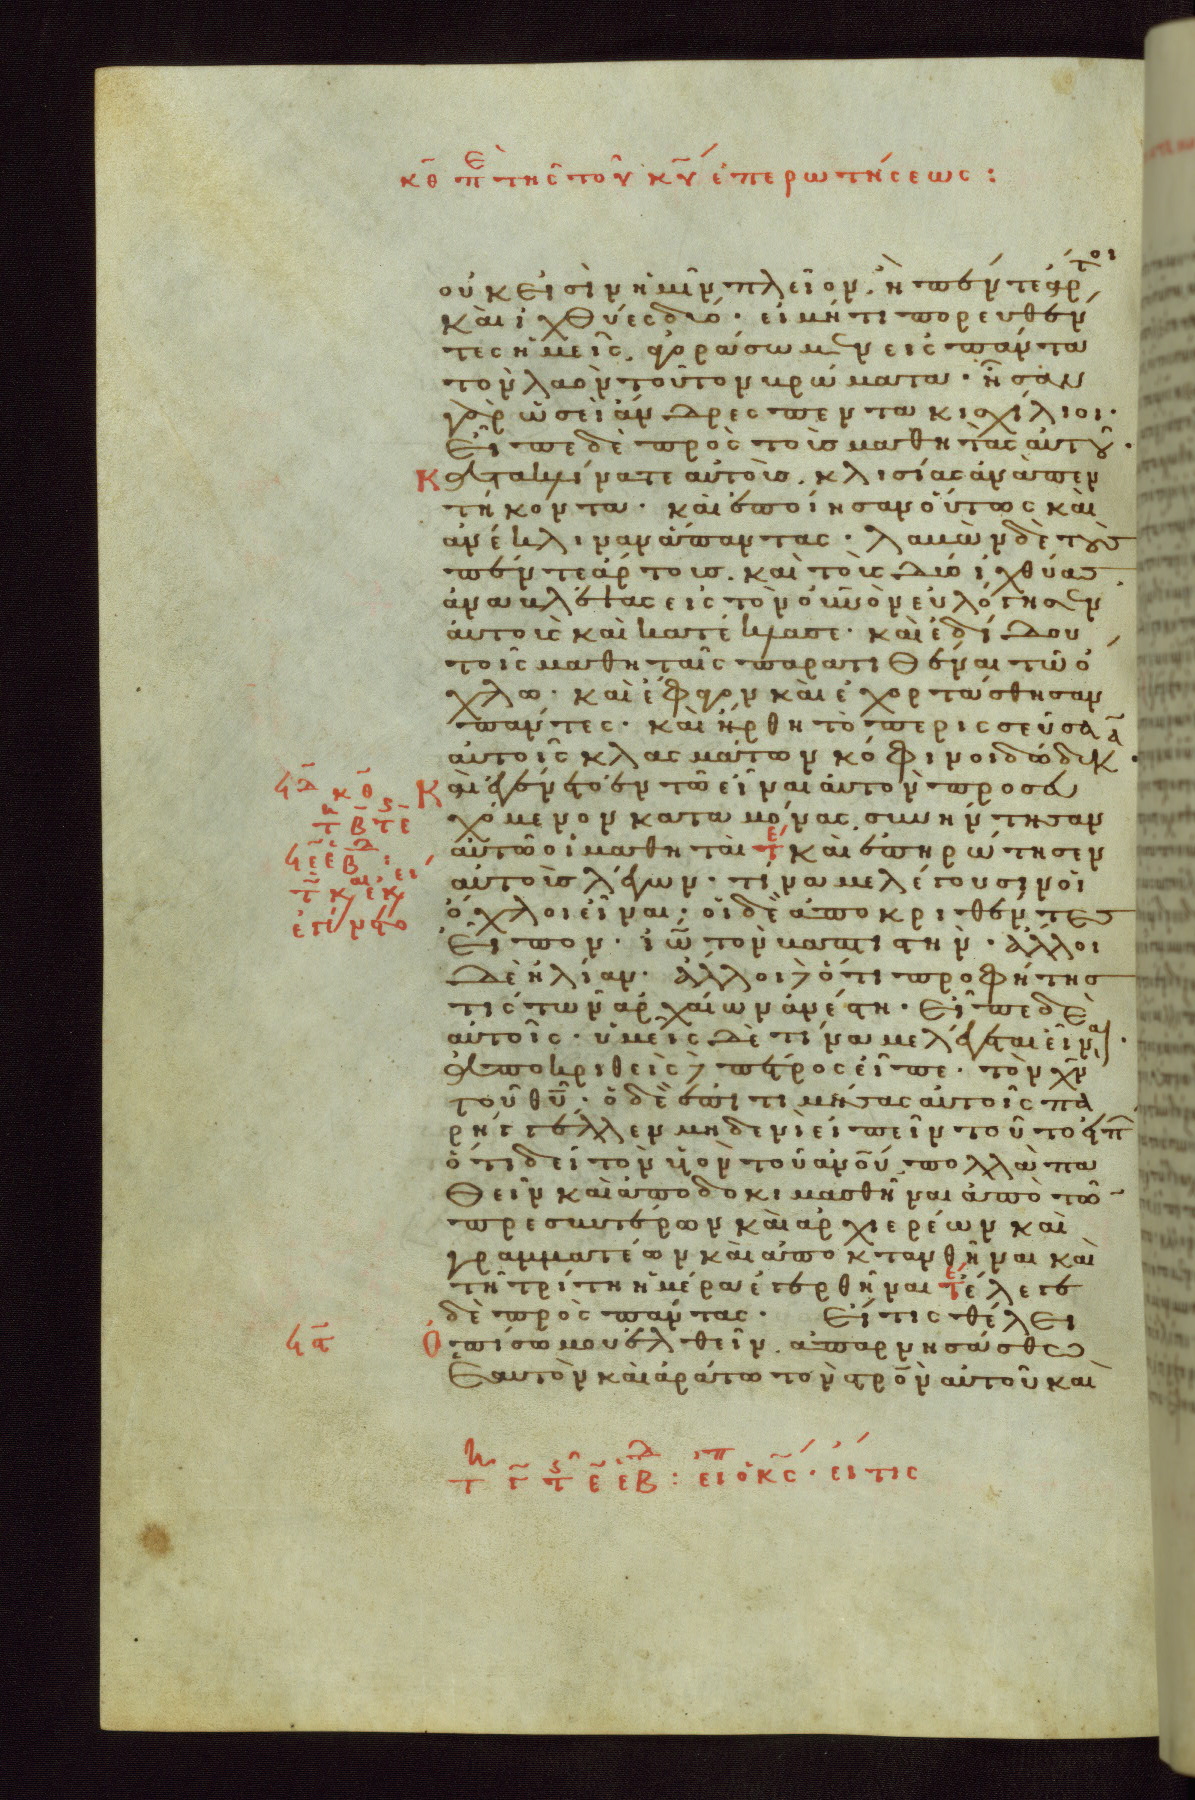 κθ πε της του κυ επερωτησεως:
οὐκ εἰσὶν ἡμῖν πλεῖον. ἢ πέντε ἄρτοι
καὶ ἰχθύες δύο· εἰ μήτι πορευθέν
τες ἡμεῖς, ἀγοράσωμεν εἰς πάντα
τὸν λαὸν τοῦτον βρώματα· ἦσαν
γὰρ ὡσεὶ ἄνδρες πεντακισχίλιοι·
Εἶπε δὲ πρὸς τοὺς μαθητὰς αὐτοῦ·
Κατακλίνατε αὐτοὺς, κλισίας ἀνὰ πεν
τήκοντα· καὶ ἐποίησαν οὕτως καὶ
ἀνέκλιναν ἅπαντας· λαβὼν δὲ τοὺς
πέντε ἄρτους, καὶ τοὺς δύο ἰχθύας
ἀναβλέψας εἰς τὸν οὐνὸν εὐλόγησεν
αὐτοὺς καὶ κατέκλασε· καὶ ἐδίδου
τοῖς μαθηταῖς παρατιθέναι τῷ ὄ
χλω· καὶ ἔφαγον καὶ ἐχορτάσθησαν
πάντες· καὶ ἤρθη τὸ περισσεῦσαν
αὐτοῖς κλασμάτων κόφινοι δώδεκα·
Καὶ ἐγένετο ἐν τῶ εἶναι αὐτὸν προσευ
χόμενον κατὰ μόνας, συνήντησαν
αὐτῶ οἱ μαθηταὶ καὶ ἐπηρώτησεν
αὐτοὺς λέγων· τίνα με λέγουσιν οἱ
ὄχλοι εἶναι· οἱ δὲ ἀποκριθέντες
Εἶπον· ἰω τὸν βαπτιστήν· ἄλλοι
δὲ ἠλίαν· ἄλλοι δὲ ὅτι προφήτης
τις τῶν ἀρχαίων ἀνέστη· Εἶπε δὲ
αὐτοῖς· ὑμεῖς δὲ τίνα με λέγεται εἶναι·
ἀποκριθεὶς δὲ πέτρος εἶπε· τὸν χν
τοῦ θυ· ὁ δὲ ἐπιτιμήσας αὐτοῖς πα
ρήγγειλεν μηδενὶ εἰπεῖν τοῦτο εἰπ
ὅτι δεῖ τὸν υον τοῦ ανου πολλὰ πα
θεῖν καὶ ἀποδοκιμασθῆναι ἀπὸ τῶν
πρεσβυτέρων καὶ ἀρχιερέων καὶ
γραμματέων καὶ ἀποκτανθῆναι καὶ
τῆ τρίτη ἡμέρα ἐγερθῆναι ἔλεγε
δὲ πρὸς πάντας· Εἴ τις θέλει
Ὀπίσω μου ἐλθεῖν, ἀπαρνησάσθω
Ἑαυτὸν καὶ ἀράτω τὸν στρον αὐτοῦ καὶ
ειπ ο κς· εἴ τις